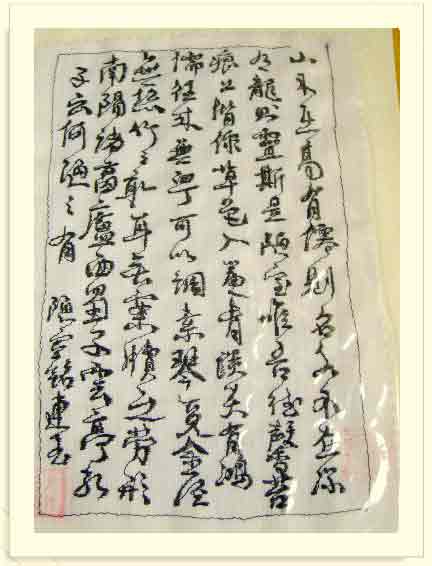 山不在高有僊則名水不在深
有龍則靈斯是陋室惟吾德馨苔
痕上階綠草色入簾青談笑有鴻
儒往來無白丁可以調素琴閱金經
無絲竹之亂耳無案牘之勞形
南陽諸葛廬西蜀子雲亭孔
子云何陋之有 陋室銘